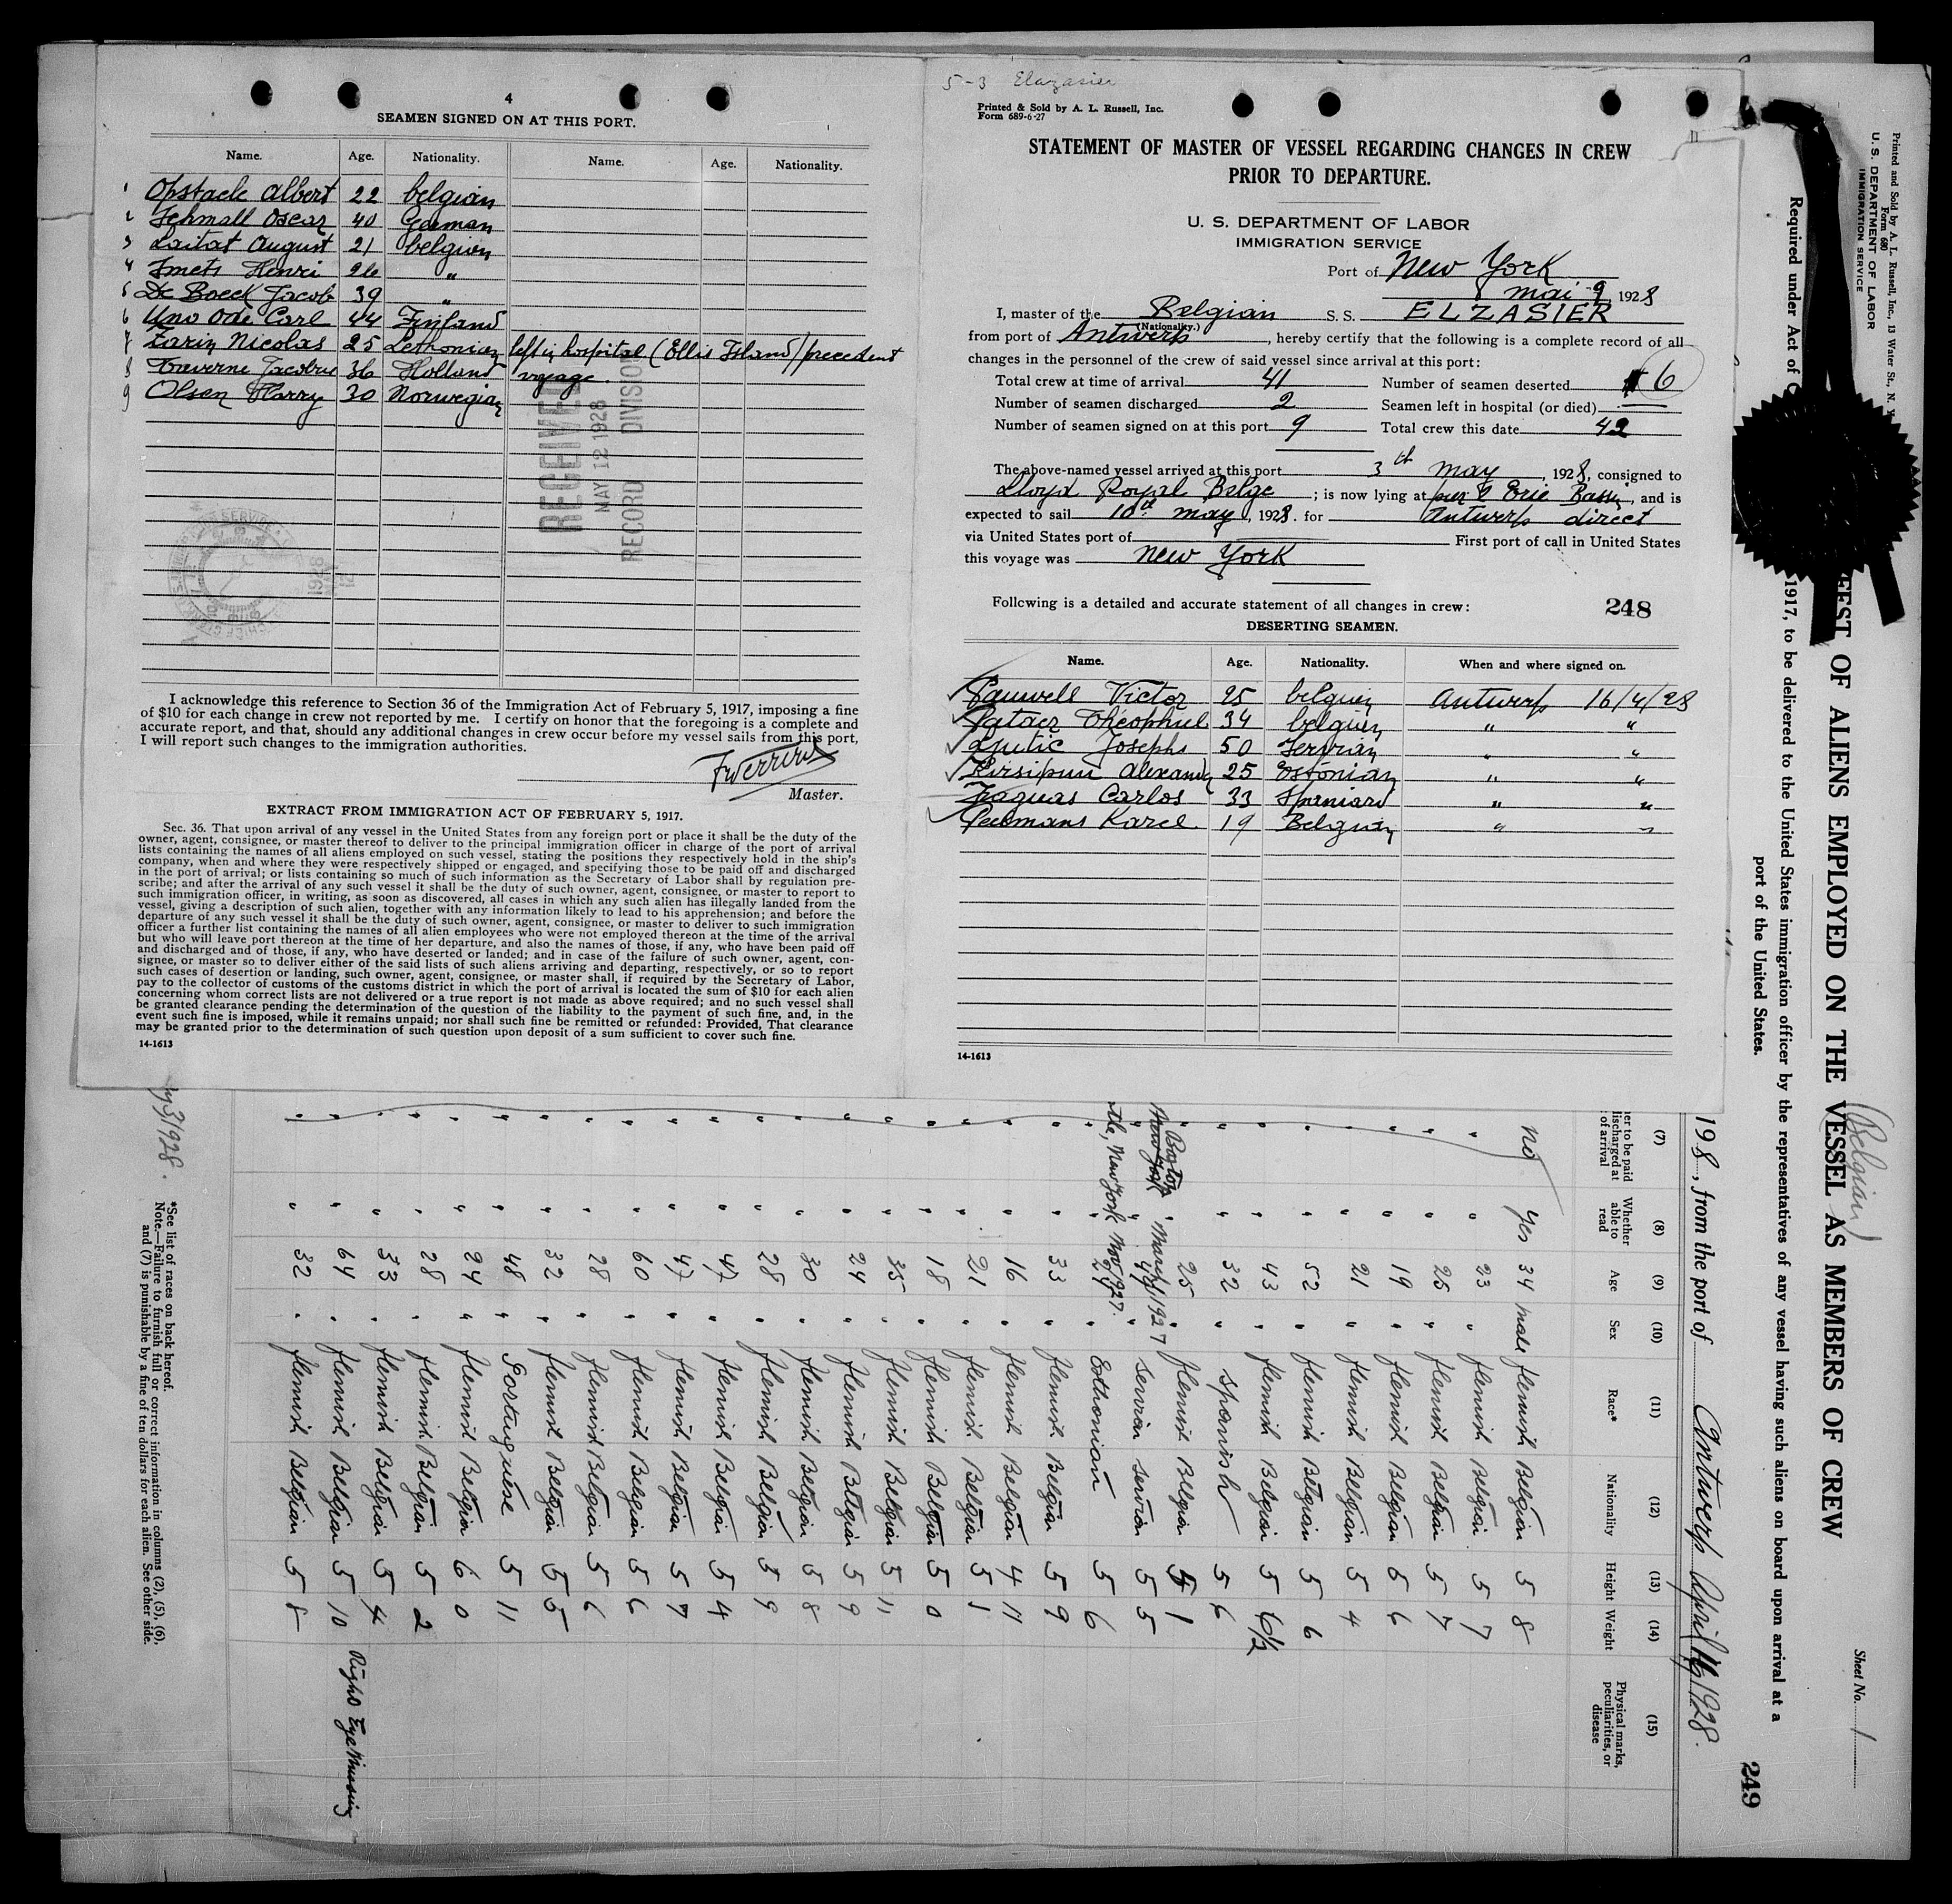 4
SEAMEN SIGNED ON AT THIS PORT.
Name. Age. Nationality. Name. Age. Nationality.
1 Opstaele Albert 22 belgian
2 Oscar 40 German
3 Laitat August 21 belgian
4 Smets Henri 26 "
5 De Boeck Jacob 39 "
6 Uno Ode Carl 44 Finland
7 Zarin Nicolas 25 left in hospital (Ellis Island) precedent
8 Jacobus 36 Holland voyage.
9 Olsen Harry 30 Norwegian
RECEIVED
MAY 12 1928
RECORD DIVISION
I acknowledge this reference to Section 36 of the Immigration Act of February 5, 1917, imposing a fine
of $10 for each change in crew not reported by me. I certify on honor that the foregoing is a complete and
accurate report, and that, should any additional changes in crew occur before my vessel sails from this port,
I will report such changes to the immigration authorities.
Master.
EXTRACT FROM IMMIGRATION ACT OF FEBRUARY 5, 1917.
Sec. 36. That upon arrival of any vessel in the United States from any foreign port or place it shall be the duty of the
owner, agent, consignee, or master thereof to deliver to the principal immigration officer in charge of the port of arrival
lists containing the names of all aliens employed on such vessel, stating the positions they respectively hold in the ship's
company, when and where they were respectively shipped or engaged, and specifying those to be paid off and discharged
in the port of arrival; or lists containing so much of such information as the Secretary of Labor shall by regulation pre-
scribe; and after the arrival of any such vessel it shall be the duty of such owner, agent, consignee, or master to report to
such immigration officer, in writing, as soon as discovered, all cases in which any such alien has illegally landed from the
vessel, giving a description of such alien, together with any information likely to lead to his apprehension; and before the
departure of any such vessel it shall be the duty of such owner, agent, consignee, or master to deliver to such immigration
officer a further list containing the names of all alien employees who were not employed thereon at the time of the arrival
but who will leave port thereon at the time of her departure, and also the names of those, if any, who have been paid off
and discharged and of those, if any, who have deserted or landed; and in case of the failure of such owner, agent, con-
signee, or master so to deliver either of the said lists of such aliens arriving and departing, respectively, or so to report
such cases of desertion or landing, such owner, agent, consignee, or master shall, if required by the Secretary of Labor,
pay to the collector of customs of the customs district in which the port of arrival is located the sum of $10 for each alien
concerning whom correct lists are not delivered or a true report is not made as above required; and no such vessel shall
be granted clearance pending the determination of the question of the liability to the payment of such fine, and, in the
event such fine is imposed, while it remains unpaid; nor shall such fine be remitted or refunded: Provided, That clearance
may be granted prior to the determination of such question upon deposit of a sum sufficient to cover such fine.
14-1613
5-3 Elazasier
Printed & Sold by A. L. Russell, Inc.
Form 689-6-27
STATEMENT OF MASTER OF VESSEL REGARDING CHANGES IN CREW
PRIOR TO DEPARTURE.
U. S. DEPARTMENT OF LABOR
IMMIGRATION SERVICE
Port of New York
mai 9, 1928
I, master of the Belgian S. S. ELZASIER
(Nationality.)
from port of Antwerp, hereby certify that the following is a complete record of all
changes in the personnel of the crew of said vessel since arrival at this port:
Total crew at time of arrival 41 Number of seamen deserted 6
Number of seamen discharged 2 Seamen left in hospital (or died)
Number of seamen signed on at this port 9 Total crew this date 42
The above-named vessel arrived at this port 3th may, 1928, consigned to
Lloyd Royal Belge; is now lying at pier 2 Erie Bassin, and is
expected to sail 10th may, 1928. for Antwerp direct
via United States port of First port of call in United States
this voyage was New York
Following is a detailed and accurate statement of all changes in crew: 248
DESERTING SEAMEN.
Name. Age. Nationality. When and where signed on.
Pauwell Victor 25 belgian Antwerp 16/4/28
Theophiel 34 belgian " "
Josephs 50 Servian " "
Kirsipuu Alexandy 25 Estonian " "
Fraguas Carlos 33 Spaniard " "
Peemans Karel 19 Belgian " "
14-1613
Printed and Sold by A. L. Russell, Inc., 13 Water St., N. Y.
Form 680
U. S. DEPARTMENT OF LABOR
IMMIGRATION SERVICE
(Belgian)
Sheet No. 1
FEST OF ALIENS EMPLOYED ON THE VESSEL AS MEMBERS OF CREW
Required under Act of C 1917, to be delivered to the United States immigration officer by the representatives of any vessel having such aliens on board upon arrival at a
port of the United States.
249
198, from the port of Antwerp April 16 1928.
(7) (8) (9) (10) (11) (12) (13) (14) (15)
er to be paid discharged at of arrival Whether able to read Age Sex Race* Nationality Height Weight Physical marks, peculiarities, or disease
no yes 34 male flemish Belgian 5 8
" " 23 " flemish Belgian 5 7
" " 25 " flemish Belgian 5 7
" " 19 " flemish Belgian 5 6
" " 21 " flemish Belgian 5 4
" " 52 " flemish Belgian 5 6
" " 43 " flemish Belgian 5 6½
" " 32 " Spanish 5 6
" " 25 " flemish Belgian 5 1
Boston New York March 1927
" " " servian servian 5 5
New York Nov 1927.
" " " Esthonian 5 6
" " 33 " flemish Belgian 5 9
" " 16 " flemish Belgian 4 11
" " 21 " flemish Belgian 5 1
" " 18 " flemish Belgian 5 0
" " 35 " flemish Belgian 5 11
" " 24 " flemish Belgian 5 9
" " 30 " flemish Belgian 5 8
" " 28 " flemish Belgian 5 9
" " 47 " flemish Belgian 5 4
" " 47 " flemish Belgian 5 7
" " 60 " flemish Belgian 5 6
" " 28 " flemish Belgian 5 6
" " 32 " flemish Belgian 5 5
" " 48 " Portuguese 5 11
" " 24 " flemish Belgian 6 0
" " 28 " flemish Belgian 5 2
" " 33 " flemish Belgian 5 4
" " 64 " flemish Belgian 5 10 Right Eye Missing
" " 32 " flemish Belgian 5 8
*See list of races on back hereof.
Note.—Failure to furnish full or correct information in columns (2), (5), (6),
and (7) is punishable by a fine of ten dollars for each alien. See other side.
3/1928.